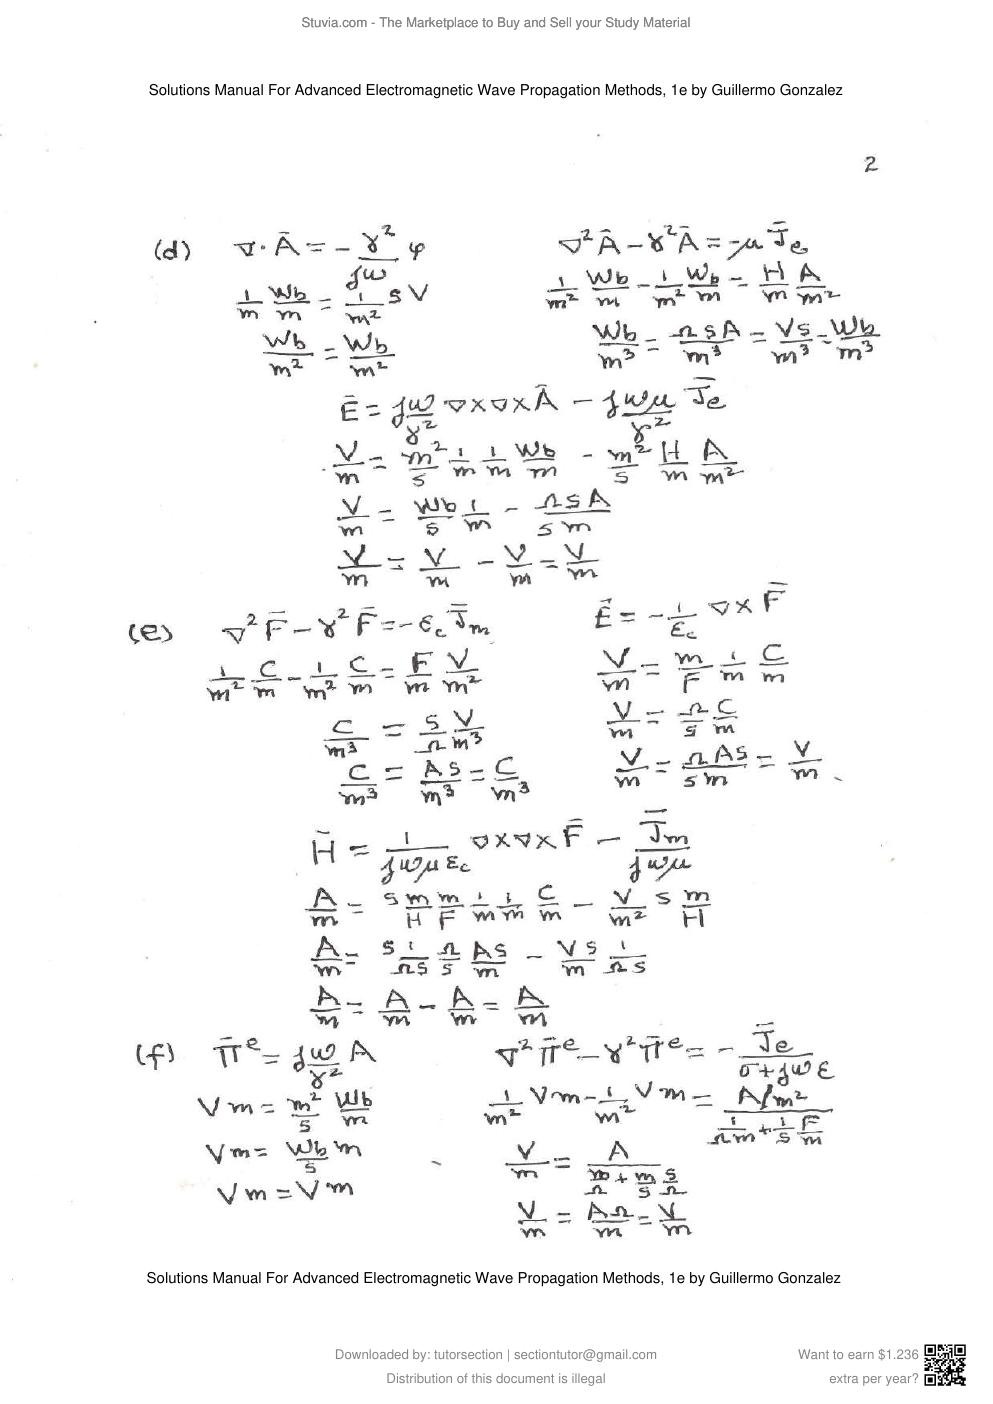 Stuvia.com - The Marketplace to Buy and Sell your Study Material
Solutions Manual For Advanced Electromagnetic Wave Propagation Methods, 1e by Guillermo Gonzalez
2
(d) ∇·Ā = -γ²/jω φ
1/m Wb/m = 1/m² s V
Wb/m² = Wb/m²
∇²Ā - γ²Ā = -μ J̄e
1/m² Wb/m - 1/m² Wb/m = H/m A/m²
Wb/m³ = ΩsA/m³ = Vs/m³ = Wb/m³
Ē = jω/γ² ∇×∇×Ā - jωμ/γ² J̄e
V/m = m²/s 1/m 1/m Wb/m - m²/s H/m A/m²
V/m = Wb/s 1/m - ΩsA/sm
V/m = V/m - V/m = V/m
(e) ∇²F̄ - γ²F̄ = -εc J̄m
1/m² C/m - 1/m² C/m = F/m V/m²
C/m³ = s/Ω V/m³
C/m³ = As/m³ = C/m³
Ē = -1/εc ∇×F̄
V/m = m/F 1/m C/m
V/m = Ω/s C/m
V/m = ΩAs/sm = V/m
H̄ = 1/jωμεc ∇×∇×F̄ - J̄m/jωμ
A/m = s m/H m/F 1/m 1/m C/m - V/m² s m/H
A/m = s 1/Ωs Ω/s As/m - Vs/m 1/Ωs
A/m = A/m - A/m = A/m
(f) π̄ᵉ = jω/γ² A
Vm = m²/s Wb/m
Vm = Wb/s m
Vm = Vm
∇²π̄ᵉ - γ²π̄ᵉ = - J̄e/σ+jωε
1/m² Vm - 1/m² Vm = A/m²/1/Ωm + 1/s F/m
V/m = A/m/Ω + m/s s/Ω
V/m = AΩ/m = V/m
Solutions Manual For Advanced Electromagnetic Wave Propagation Methods, 1e by Guillermo Gonzalez
Downloaded by: tutorsection | sectiontutor@gmail.com
Distribution of this document is illegal
Want to earn $1.236
extra per year?